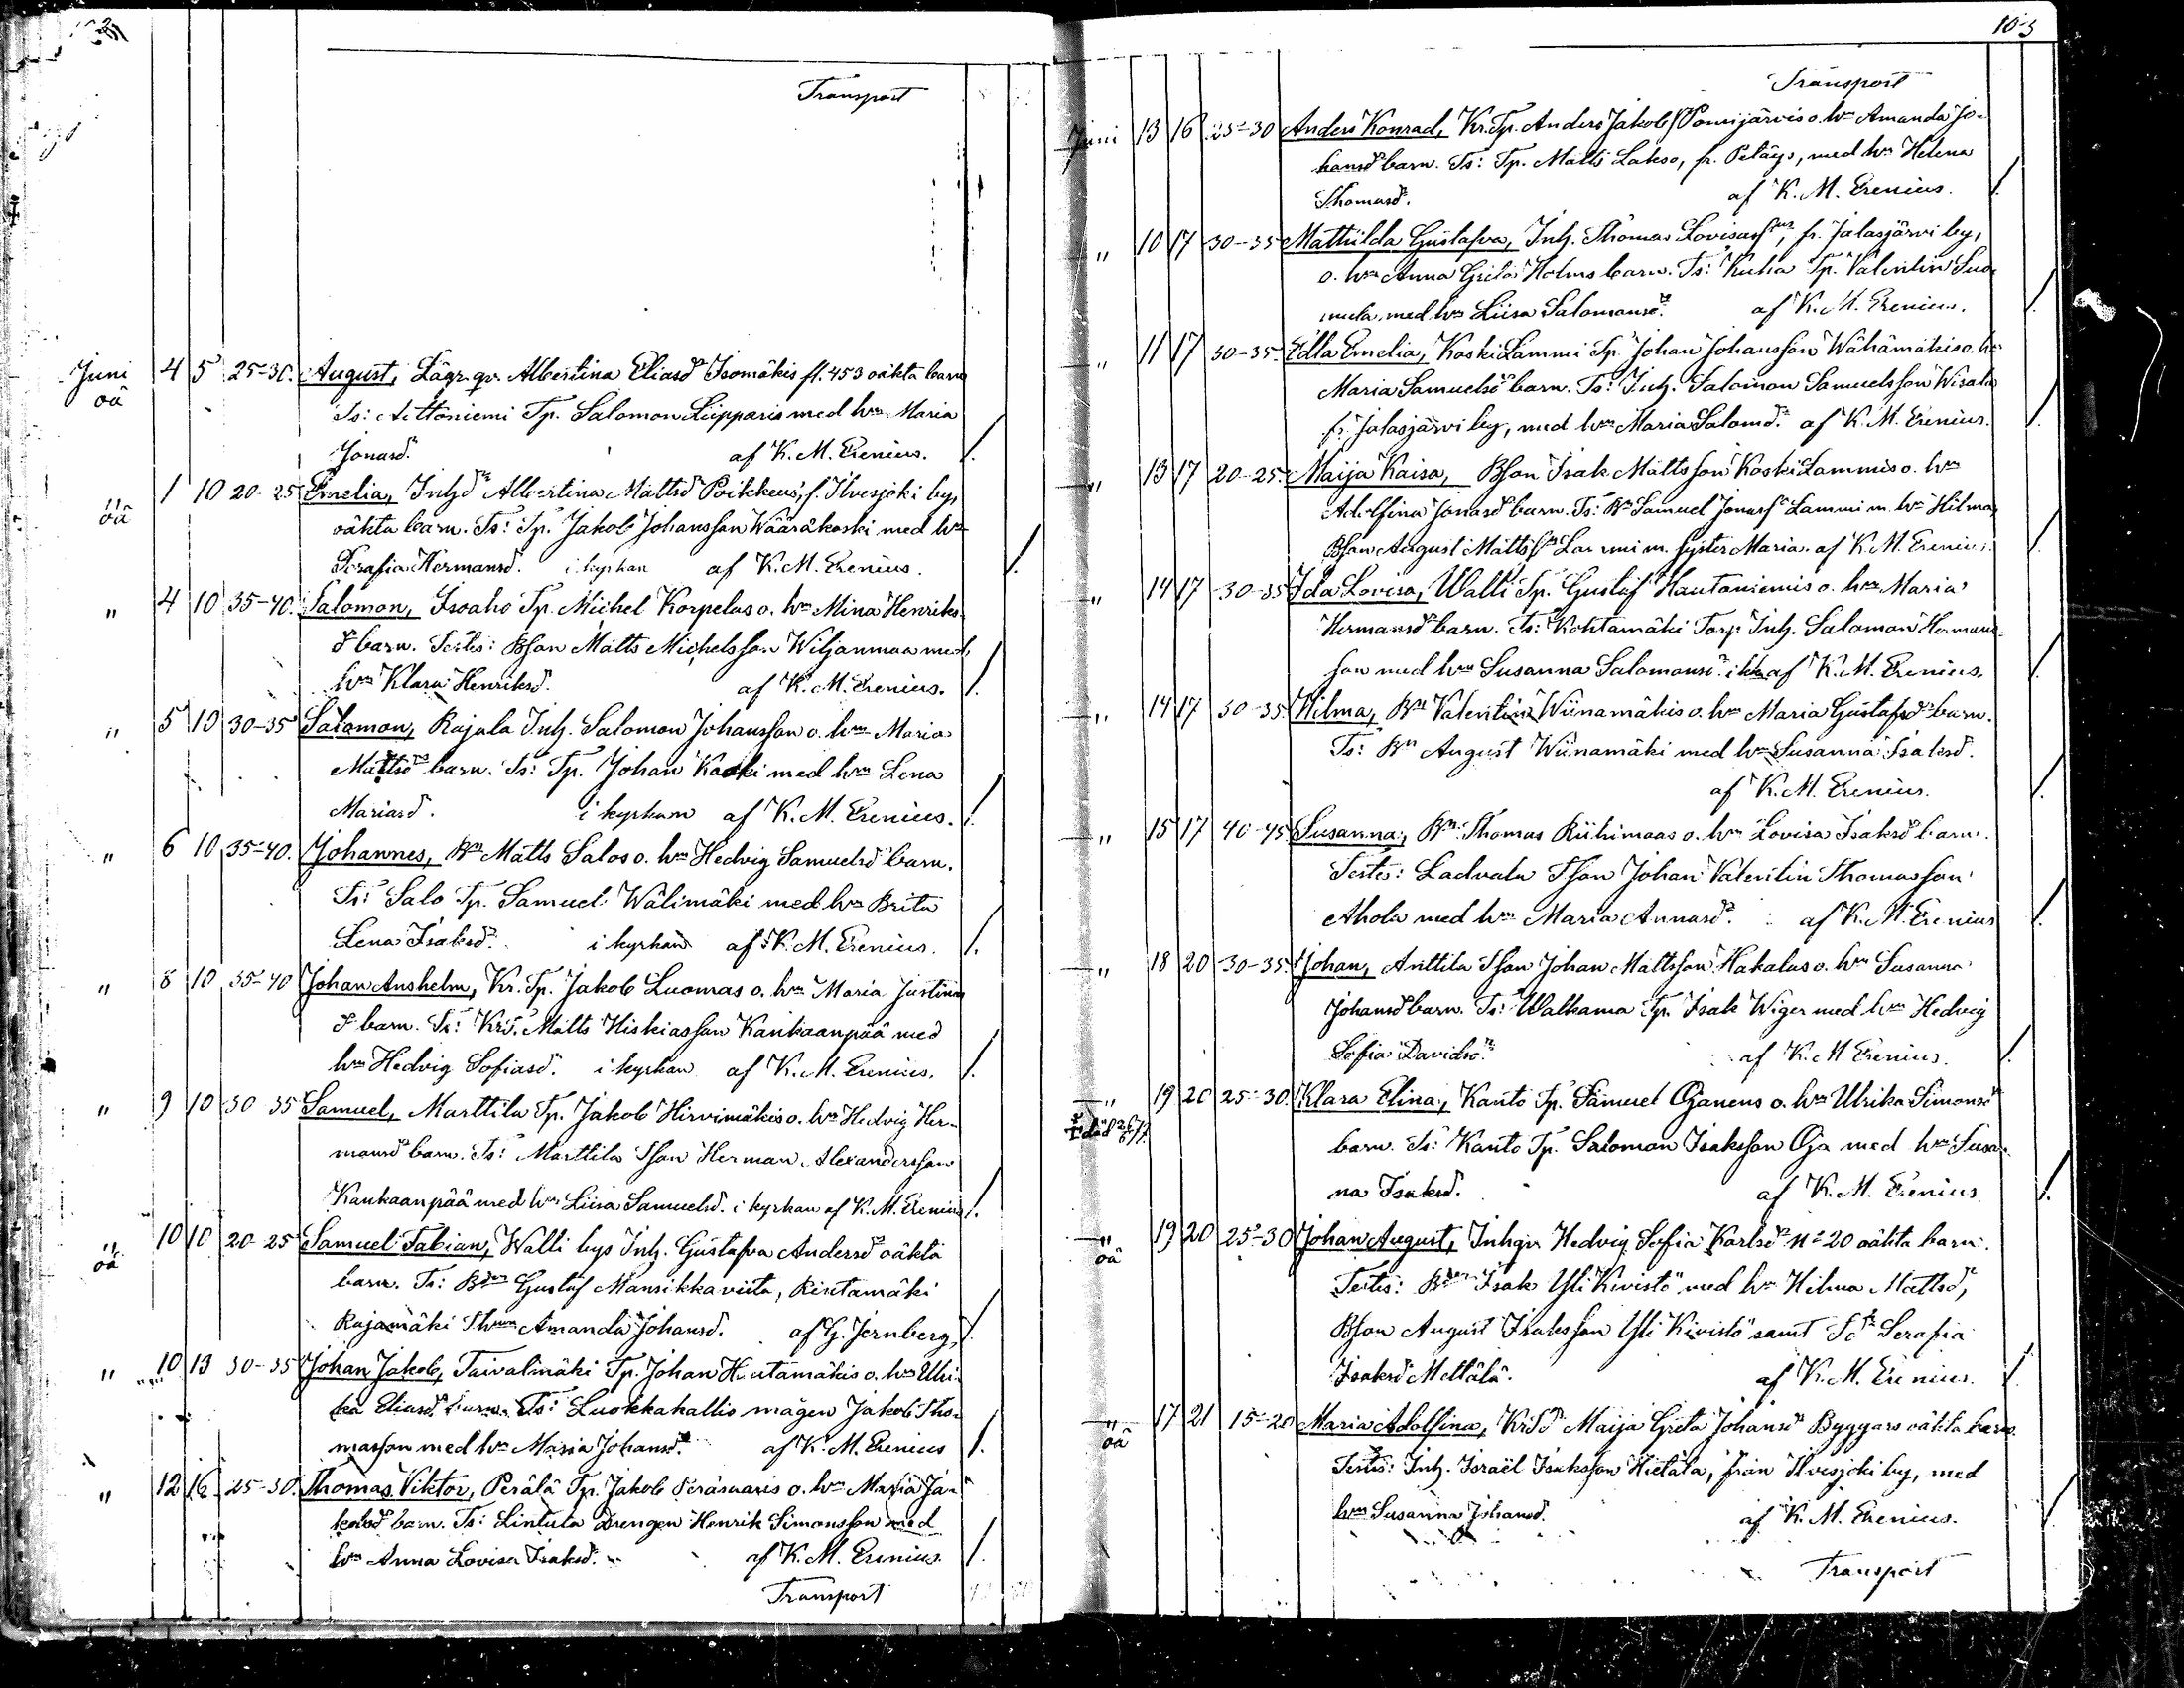 Transport
Juni 4 5 25-30. August, Lägr. qv. Albertina Eliasd. Isomäkis fl. 453 oäkta barn
oä Ts: Aittoniemi Tp. Salomon Liipparis med hm Maria
Jonasd. af K. M. Erenius. /.
" 1 10 20-25 Emelia, Inhds Albertina Mattsd. Poikkeus, f. Ilvesjoki by,
oä oäkta barn. Ts: Tp. Jakob Johansson Wääräkoski med hm
Serafia Hermansd. i kyrkan af K. M. Erenius. /.
" 4 10 35-40. Salomon, Isoaho Tp. Michel Korpelas o. hm Mina Henriks-
d barn. Testes: Bson Matts Michelsson Wiljanmaa med
hm Klara Henriksd. af K. M. Erenius. /.
" 5 10 30-35 Salomon, Rajala Inh. Salomon Johansson o. hm Maria
Mattsds barn. Ts: Tp. Johan Koski med hm Lena
Mariasd. i kyrkan af K. M. Erenius. /.
" 6 10 35-40. Johannes, Bn Matts Salos o. hm Hedvig Samuelsd barn.
Ts: Salo Tp. Samuel Wälimäki med hm Brita
Lena Isaksd. i kyrkan af K. M. Erenius. /.
" 8 10 35-40 Johan Anshelm, Kr. Tp. Jakob Luomas o. hm Maria Justina
d barn. Ts: KrT. Matts Hiskiasson Kankaanpää med
hm Hedvig Sofiasd. i kyrkan af K. M. Erenius. /.
" 9 10 30 35 Samuel, Marttila Tp. Jakob Hirvimäkis o. hm Hedvig Her-
mansd barn. Ts: Marttila Tson Herman Alexandersson
Kankaanpää med hm Liisa Samuelsd. i kyrkan af K. M. Erenius /.
" 10 10 20-25 Samuel Fabian, Walli bys Inh. Gustafva Andersd oäkta
oä barn. Ts: Bden Gustaf Mansikkaviita, Rintamäki
Rajamäki Amanda Johansd. af G. Jernberg, /.
" 10 13 30-35 Johan Jakob, Taivalmäki Tp. Johan Hautamäkis o. hm Ulri-
ka Eliasd. barn. Ts: Luokkakallio mågen Jakob Tho-
masson med hm Maria Johansd. af K. M. Erenius /.
" 12 16 25-30. Thomas Viktor, Perälä Tp. Jakob Peräsaaris o. hm Maria Ja-
kobsd barn. Ts: Lintula Drengen Henrik Simonsson med
hm Anna Lovisa Isaksd. af K. M. Erenius. /.
Transport
103
Transport
Juni 13 16 25-30 Anders Konrad, Kr. Tp. Anders Jakobs Ponsijärvis o. hm Amanda Jo-
hansd barn. Ts: Tp. Matts Lakso, fr. Peläys, med hm Helena
Thomasd. af K. M. Erenius. /.
" 10 17 30-35 Mathilda Gustafva, Inh. Thomas Lovisas, fr. Jalasjärvi by,
o. hm Anna Greta Holms barn. Ts: Kuha Tp. Valentin Luo-
mula, med hm Liisa Salomonsd. af K. M. Erenius. /.
" 11 17 30-35. Edla Emelia, Koski Lammi Tp. Johan Johansson Wähämäkis o. hm
Maria Samuelsd barn. Ts: Inh. Salomon Samuelsson Wisala
fr. Jalasjärvi by, med hm Maria Salomd. af K. M. Erenius. /.
" 13 17 20-25. Maija Kaisa, Bson Isak Mattsson Koski Lammis o. hm
Adolfina Jonasd barn. Ts: Bn Samuel Jonass Lammi m. hm Hilma,
Bson August Matts Lammi m. syster Maria. af K. M. Erenius. /.
" 14 17 30-35 Ida Lovisa, Walli Tp. Gustaf Hautaniemis o. hm Maria
Hermansd barn. Ts: Kohtamäki Torp Inh. Salomon Hermans-
son med hm Susanna Salomonsd. af K. M. Erenius. /.
" 14 17 30-35. Hilma, Bn Valentin Wiinamäkis o. hm Maria Gustafsd barn.
Ts: Bn August Wiinamäki med hm Susanna Isaksd.
af K. M. Erenius. /.
" 15 17 40-45 Susanna, Bn Thomas Riihimaas o. hm Lovisa Isaksd barn.
Testes: Ladvala Tson Johan Valentin Thomasson
Ahola med hm Maria Annasd. af K. M. Erenius /.
" 18 20 30-35. Johan, Anttila Tson Johan Mattsson Hakalas o. hm Susanna
Johansd barn. Ts: Walkama Tp. Isak Wiger med hm Hedvig
Sofia Davidsd. af K. M. Erenius. /.
" 19 20 25-30. Klara Elina, Kanto Tp. Samuel Ojanens o. hm Ulrika Simonsd
död barn. Ts: Kanto Tp. Salomon Isaksson Oja med hm Susan-
na Isaksd. af K. M. Erenius. /.
" 19 20 25-30 Johan August, Inhqv. Hedvig Sofia Karlsd No 20 oäkta barn.
oä Testes: Bden Isak Yli Kivistö med hm Hilma Mattsd,
Bson August Isaksson Yli Kivistö samt Serafia
Isaksd Mettälä. af K. M. Erenius. /.
" 17 21 15-20 Maria Adolfina, KrTd Maija Greta Johansd Byggars oäkta barn.
oä Testes: Inh. Israël Isaksson Hietala, från Ilvesjoki by, med
hm Susanna Johansd. af K. M. Erenius. /.
Transport